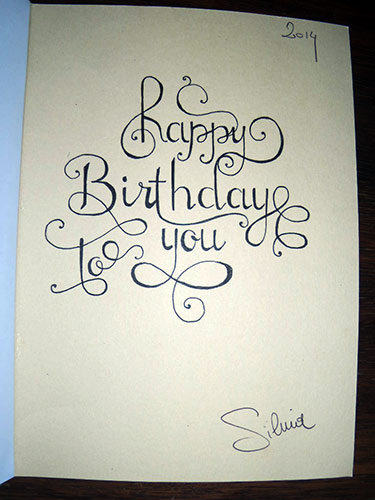 2014
happy
Birthday
to you
Silvia